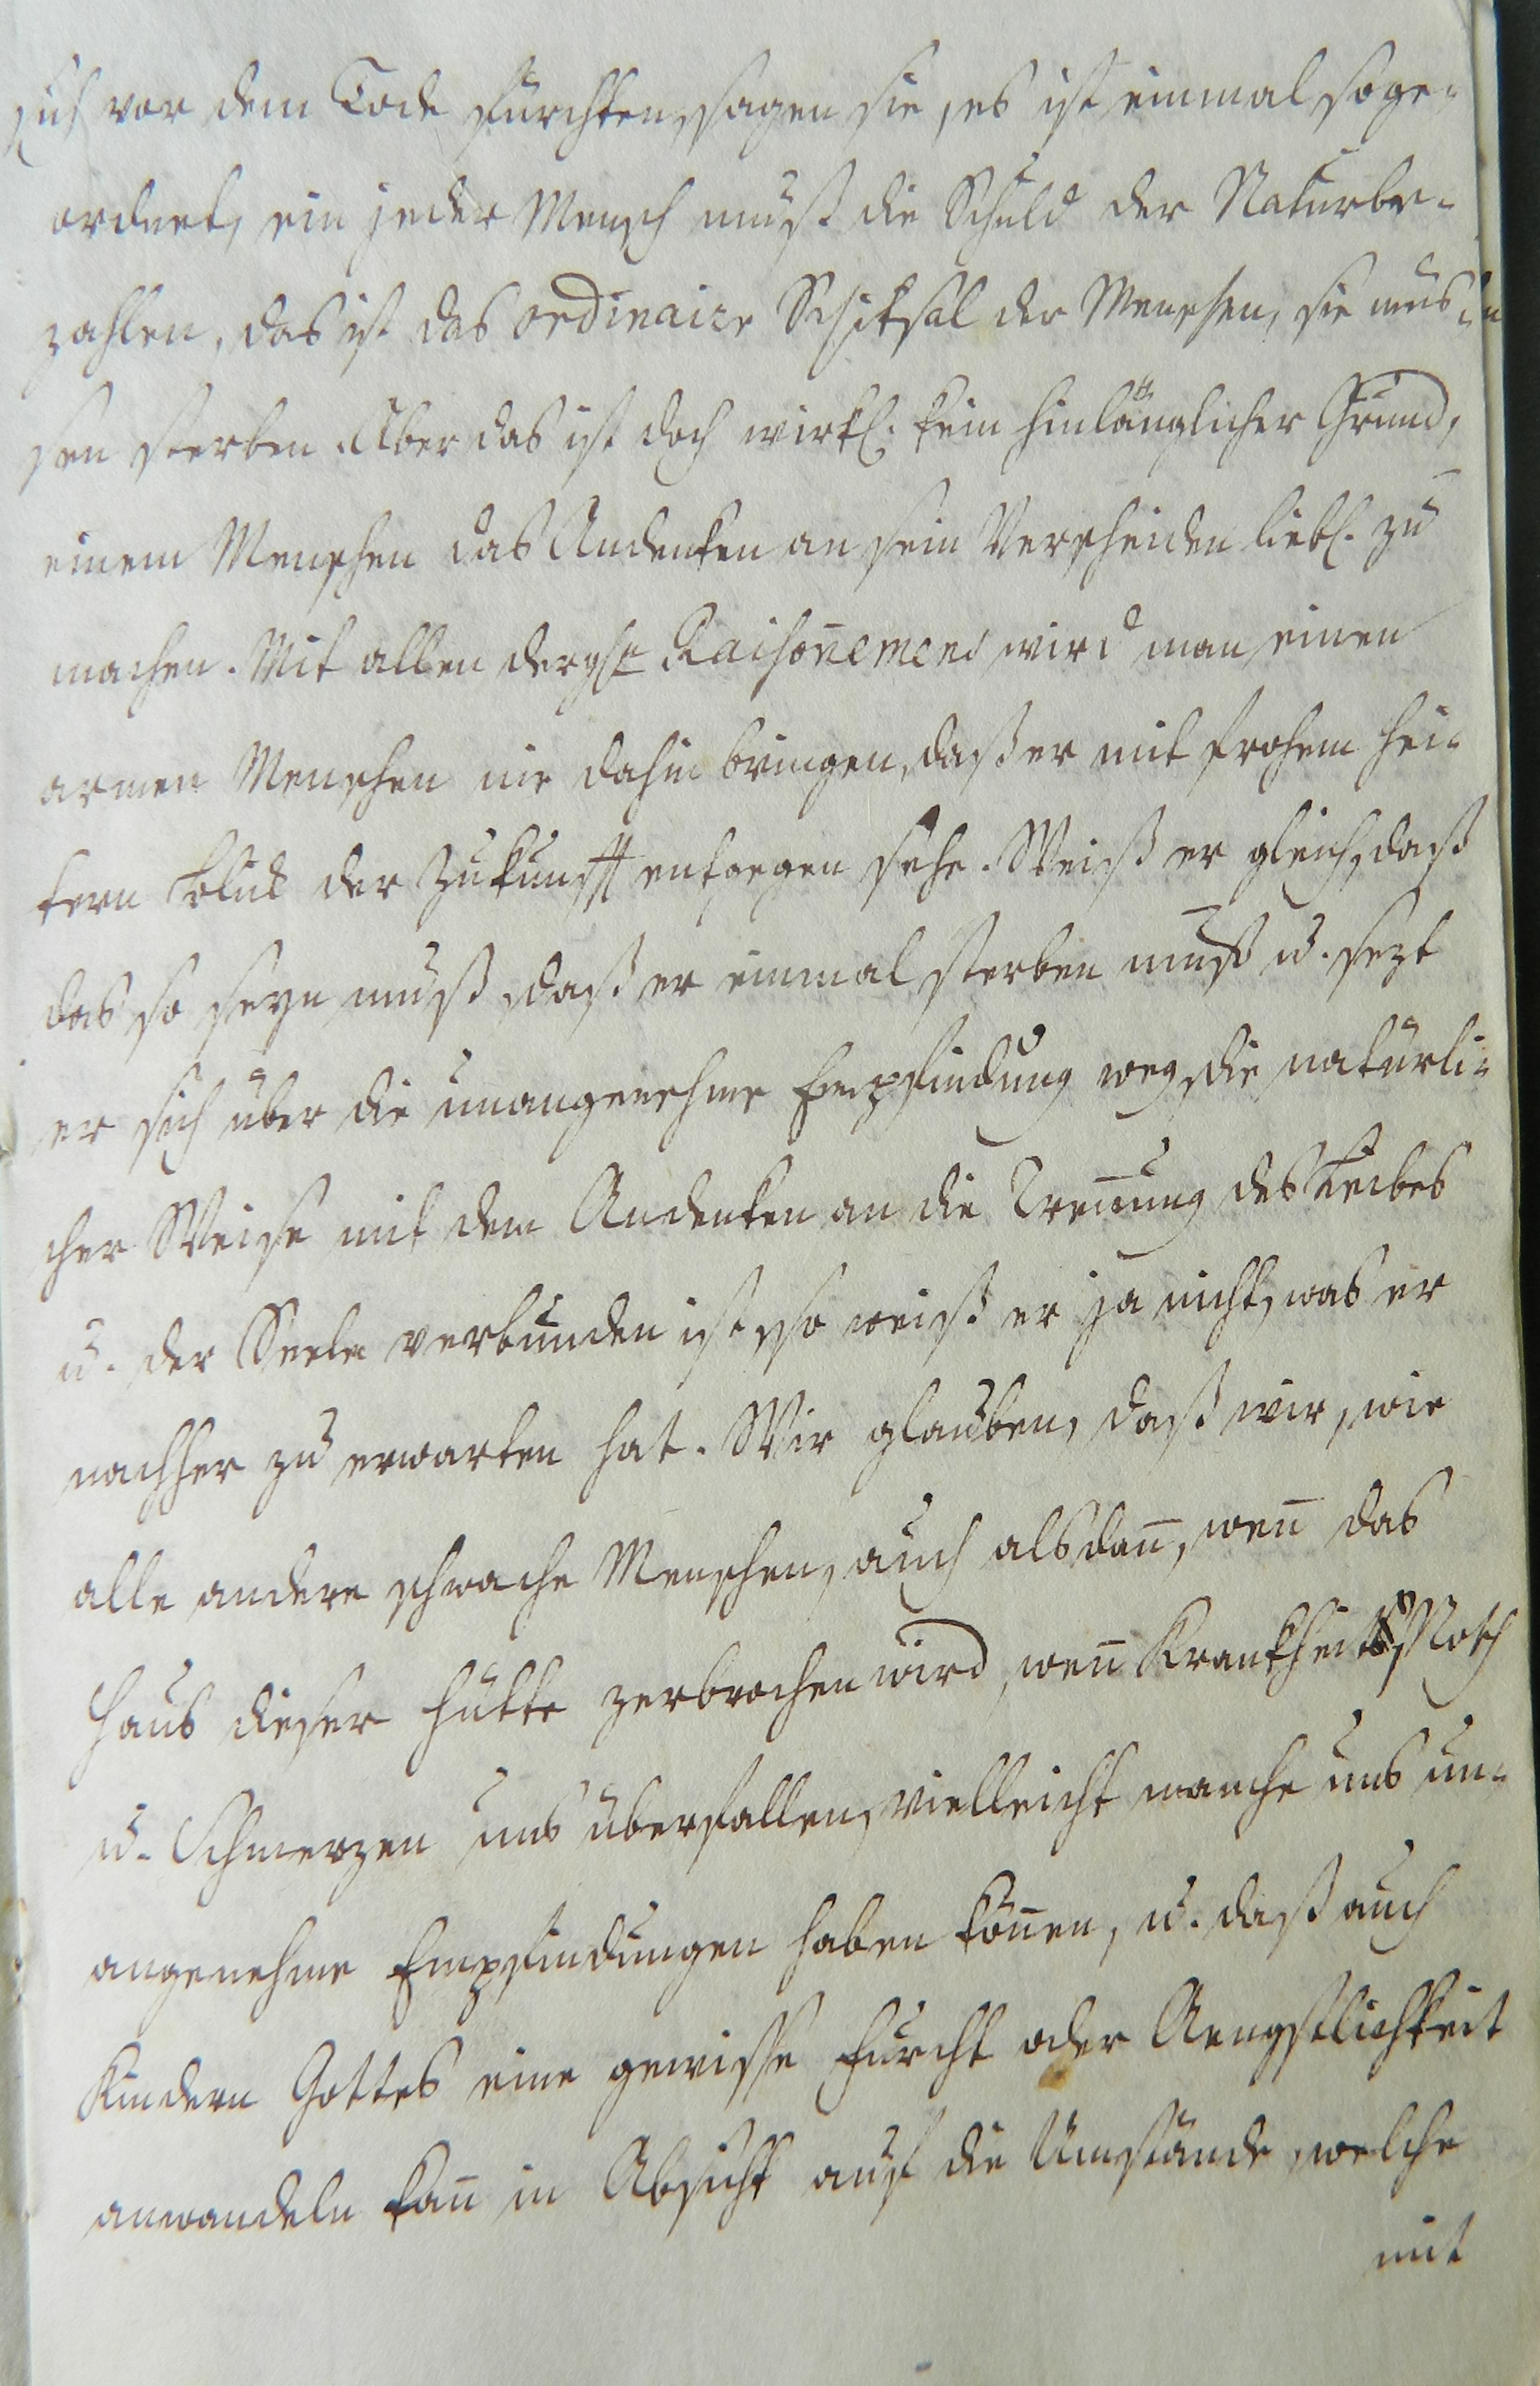 sich vor dem Tode fürchten, sagen sie, es ist einmal so ge-
ordnet, ein jeder Mensch muß die Schuld der Natur be-
zahlen, das ist das ordinaire Schiksal der Menschen, sie müs-
sen sterben. Aber das ist doch wirkl. kein hinlänglicher Grund,
einem Menschen das Andenken an sein Verscheiden liebl. zu
machen. Mit allen dergl. Raisonemens wird man einen
armen Menschen nie dahin bringen, daß er mit frohem hei-
tern Blick der Zukunfft entgegen sehe. Weiß er gleich, daß
das so seyn muß, daß er einmal sterben muß u. sezt
er sich über die unangenehme Empfindung weg, die natürli-
cher Weise mit dem Andenken an die Trenn̄ung des Leibes
u. der Seele verbunden ist, so weiß er ja nicht, was er
nachher zu erwarten hat. Wir glauben, daß wir, wie
alle andere schwache Menschen, auch alsdan̄, wen̄ das
Haus dieser Hütte zerbrochen wird, wen̄ Krankheit, Noth
u. Schmerzen uns überfallen, vielleicht manche uns un-
angenehme Empfindungen haben kön̄en, u. daß auch
Kindern Gottes eine gewisse Furcht oder Aengstlichkeit
anwandeln kan̄ in Absicht auf die Umstände, welche
mit